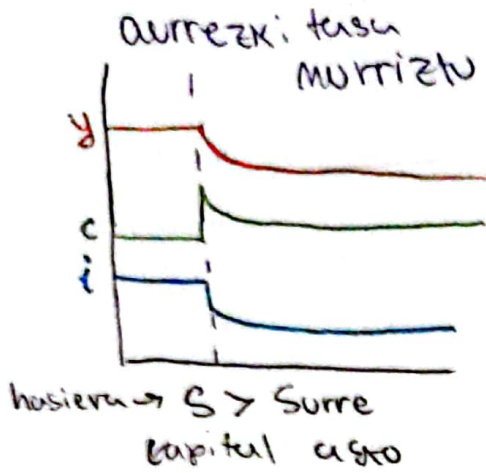 aurrezki tasa
murriztu
y
c
i
hasiera → S > Surre
capital asko